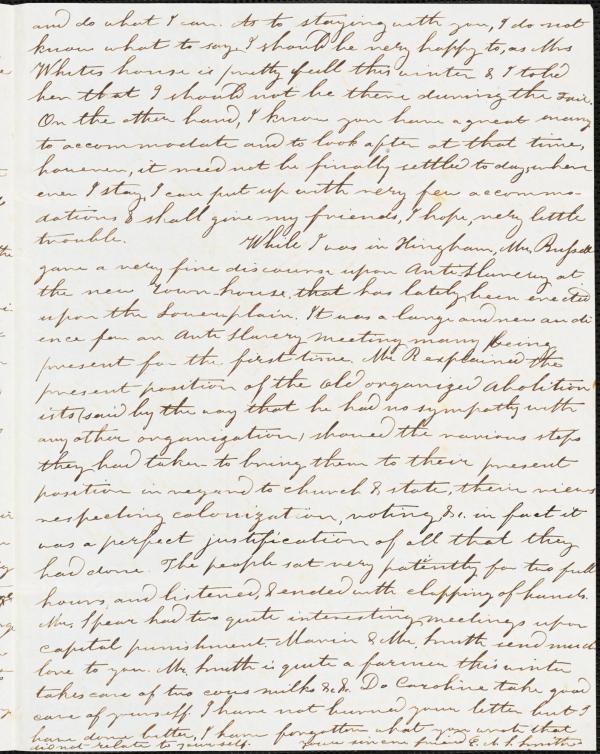 and do what I can. As to staying with you, I do not
know what to say, I should be very happy to, as Mrs
Whites house is pretty full this winter & I told
her that I should not be there during the Fair.
On the other hand, I know you have a great many
to accommodate and to look after at that time,
however, it need not be finally settled to day, when
ever I stay, I can put up with very few accommo-
dations & shall give my friends, I hope, very little
trouble. While I was in Hingham, Mr. Russell
gave a very fine discourse upon Anti Slavery at
the new Town house, that has lately been erected
upon the Lower plain. It was a large and new audi
ence for an Anti Slavery meeting many being
present for the first time, Mr R explained the
present position of the old organized Abolition
ists (said by the way that he had no sympathy with
any other organization) showed the various steps
they had taken to bring them to their present
position in regard to church & state, their views
respecting colonization, voting, &c. in fact it
was a perfect justification of all that they
had done. The people sat very patiently for two full
hours, and listened, & ended with clapping of hands.
Mr. Spear had two quite interesting meetings upon
capital punishment. & Mr. Smith send much
love to you. Mr. Smith is quite a farmer this winter
takes care of two cows milks &c &c. Do Caroline take good
care of yourself. I have not burned your letter but I
have done better, I have forgotten what you wrote that
did not relate to yourself. Your sincere friend